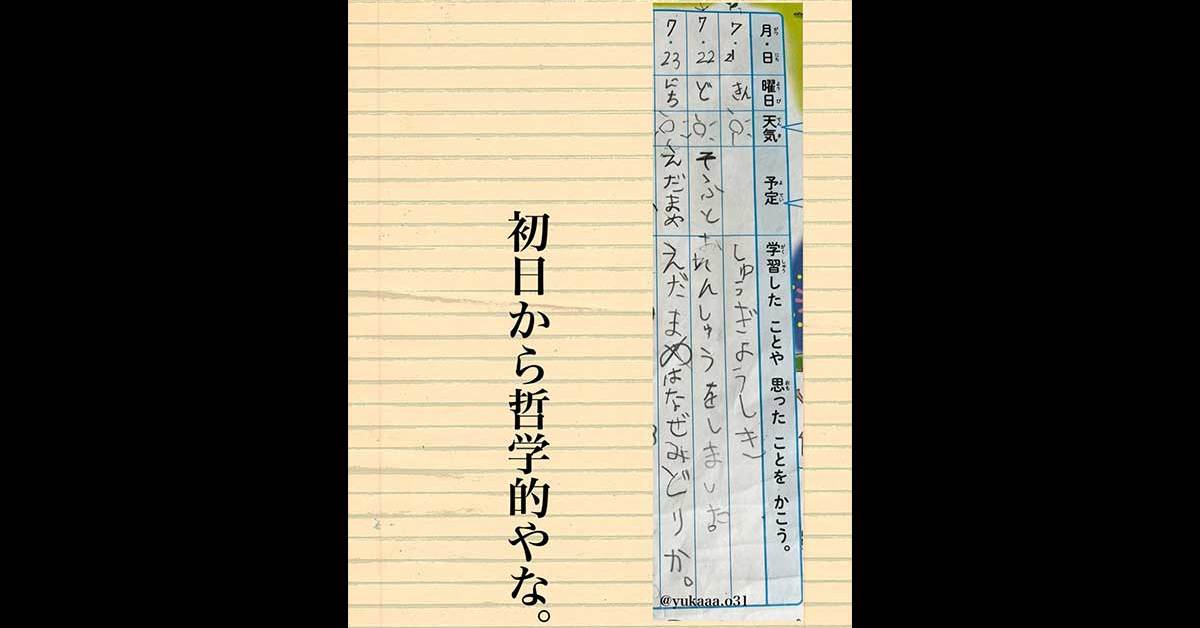 月・日 曜日 天気 予定 学習した ことや 思った ことを かこう。
7・21 きん しゅうぎようしき
7・22 ど そふと れんしゅうをしました
7・23 にち えだまめ えだまめはなぜみどりか。
@yukaaa.o31
初日から哲学的やな。